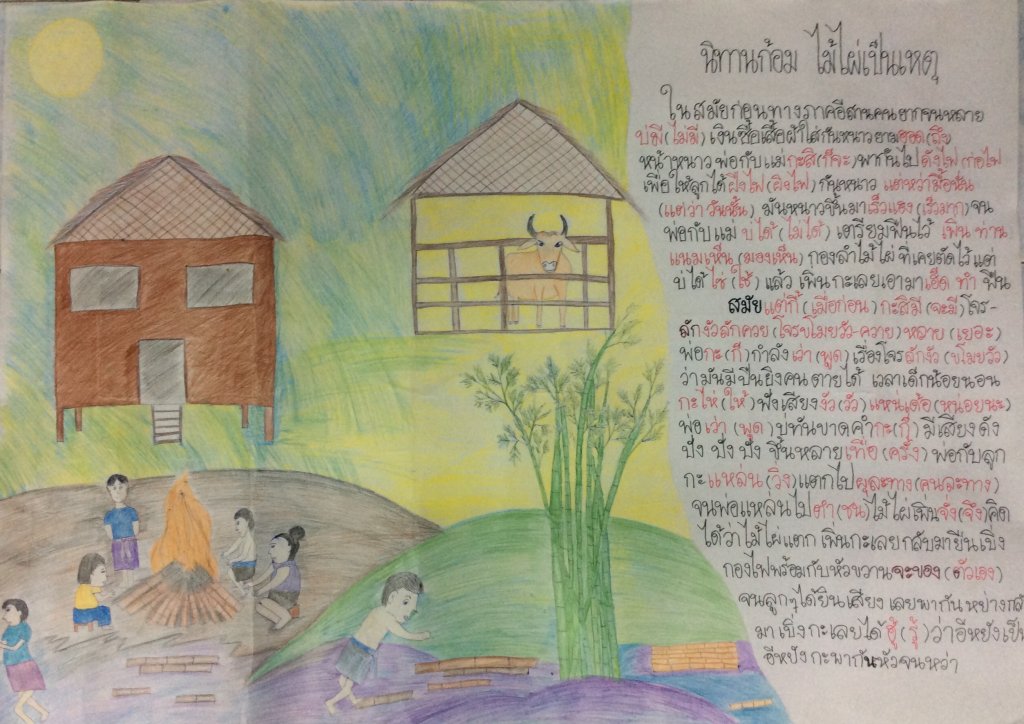 นิทานก้อม ไม้ไผ่เป็นเหตุ
ในสมัยก่อนทางภาคอีสานคนยากจนหลาย
บ่มี (ไม่มี) เงินซื้อเสื้อผ้าใส่กันหนาวยามฮอด (ถึง
หน้าหนาว พ่อกับแม่กะสิ (ก็จะ) พากันไปดังไฟ (ก่อไฟ
เพื่อให้ลูกได้ฝิงไฟ (ผิงไฟ) กันหนาว แต่หว่ามื้อนั้น
(แต่ว่าวันนั้น) มันหนาวขึ้นมาเร็วแฮง (เร็วมาก) จน
พ่อกับแม่ บ่ได้ (ไม่ได้) เตรียมฟืนไว้ เพิ่น ท่าน
แนมเห็น (มองเห็น) กองลำไม้ไผ่ ที่เคยตัดไว้ แต่
บ่ได้ใช่ (ใช้) แล้ว เพิ่นกะเลยเอามาเฮ็ด ทำ ฟืน
สมัยแต่กี้ (เมื่อก่อน) กะสิมี (จะมี) โจร-
ลักงัวลักควย (โจรขโมยวัว-ควาย) หลาย (เยอะ)
พ่อกะ (ก็) กำลังเว่า (พูด) เรื่องโจรลักงัว (ขโมยวัว)
ว่ามันมีปืนยิงคนตายได้ เวลาเด็กน้อยนอน
กะไห่ (ให้) ฟังเสียงงัว (วัว) แหน่เด้อ (หน่อยนะ)
พ่อเว่า (พูด) บ่ทันขาดคำกะ (ก็) มีเสียงดัง
ปัง ปัง ปัง ขึ้นหลายเทื่อ (ครั้ง) พ่อกับลูก
กะแหล่น (วิ่ง) แตกไปผุละทาง (คนละทาง)
จนพ่อแหล่นไปตำ (ชน) ไม้ไผ่เพิ่นจั่ง (จึง) คิด
ได้ว่าไม้ไผ่แตก เพิ่นกะเลยกลับมายืนเบิ่ง
กองไฟพร้อมกับหัวขวานจะของ (ตัวเอง)
จนลูกๆได้ยินเสียง เลยพากันหย่างกลั
มาเบิ่งกะเลยได้ฮู้ (รู้) ว่าอีหยังเป็น
อีหยัง กะพากันหัวจนหว่า